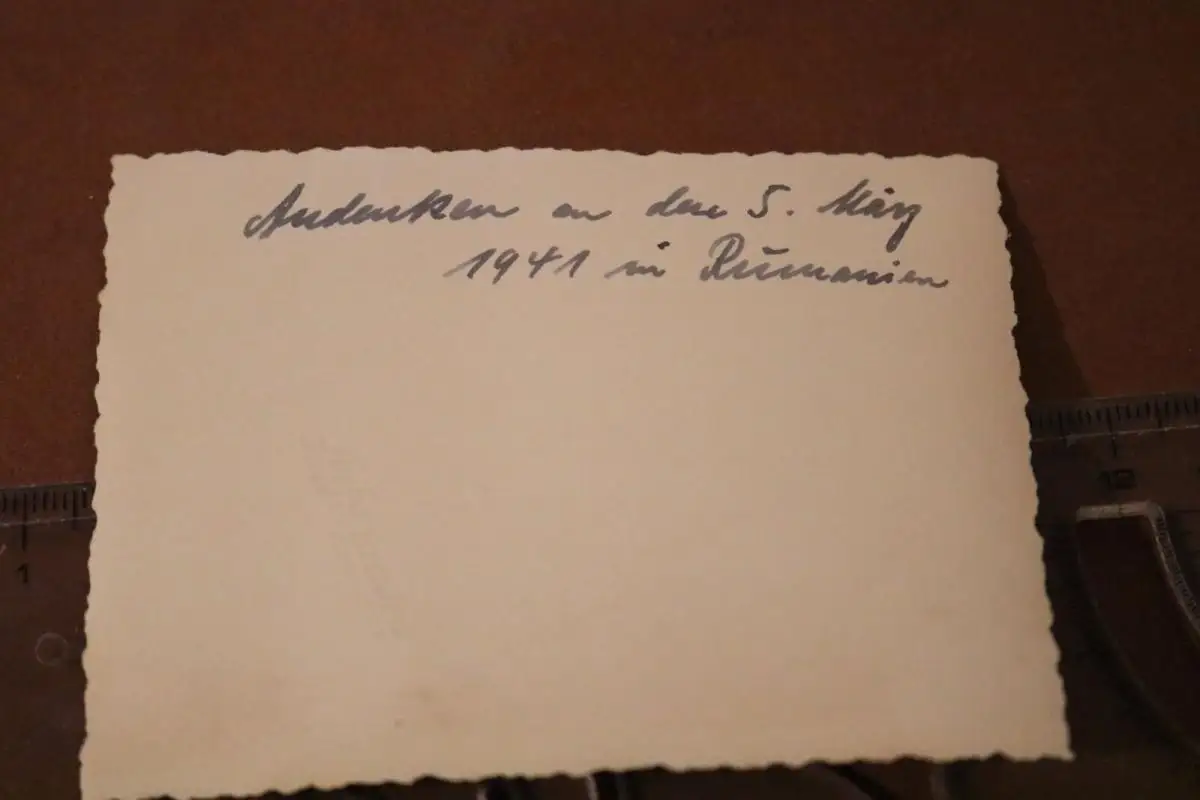 Andenken an den 5. März
1941 in Rumänien
1
12